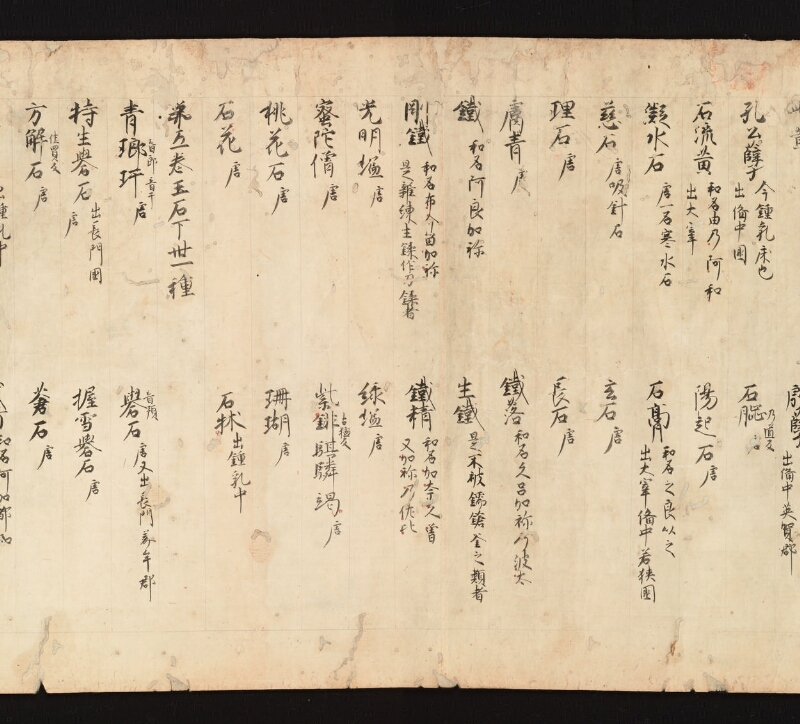 孔公孽 今鍾乳床也 出備中國
石流黄 和名由乃阿和 出大宰
凝水石 唐一名寒水石
慈石 唐吸針石
理石 唐
膚青 唐
鐵 和名阿良加祢
剛鐵 和名布介留加祢 是雜練生鍒作刀鎌者
光明塩 唐
蜜陀僧 唐
桃花石 唐
石花 唐
第五卷玉石下卅一種
青瑯玕 唐
特生礜石 出長門國 唐
方解石 唐
出備中英賀郡
石脳
陽起石 唐
石膏 和名之良以之 出大宰備中若狹國
玄石 唐
長石 唐
鐵落 和名久呂加祢乃波太
生鐵 是不被鐺鎗釜之類者
鐵精 和名加奈久曽 又加祢乃佐比
緑塩 唐
紫鉚騏驎竭 唐
珊瑚 唐
石牀 出鍾乳中
礜石 唐又出長門美午郡
握雪礜石 唐
蒼石 唐